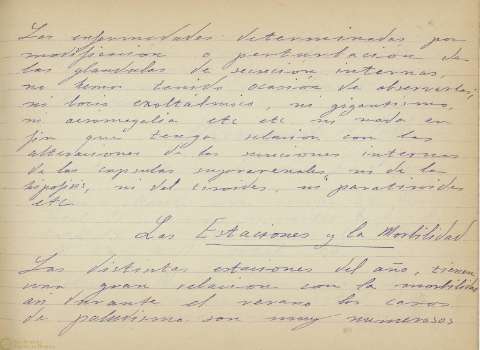 Las enfermedades determinadas por
modificacion o perturbacion de
las glandulas de secrecion internas,
no hemos tenido ocasion de observarlas,
ni bocio exoftalmico, ni gigantismo,
ni acromegalia etc etc ni nada en
fin que tenga relacion con las
alteraciones de las secreciones internas
de las capsulas suprarenales, ni de la
hipofisis, ni del tiroides, ni paratiroides
etc.
Las Estaciones y la Morbilidad
Las distintas estaciones del año, tienen
una gran relacion con la morbilidad
asi durante el verano los casos
de paludismo son muy numerosos